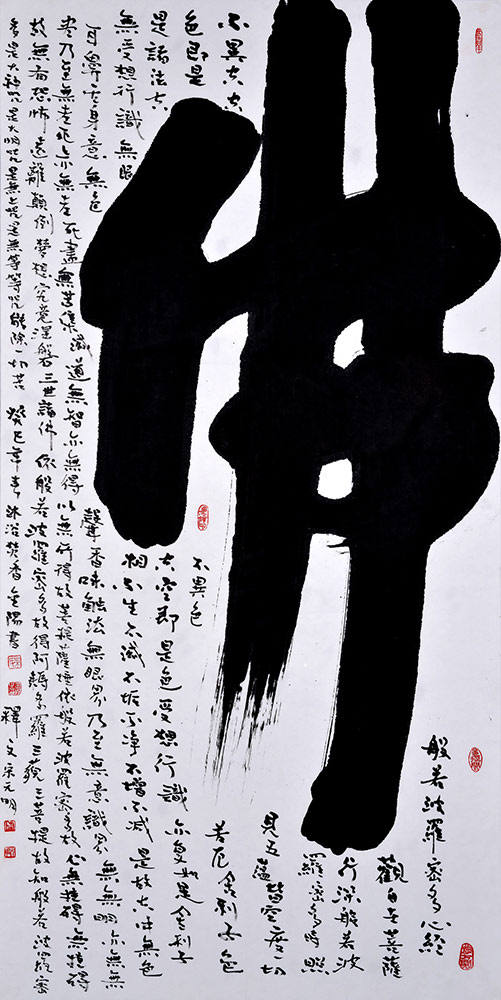 佛
般若波羅密多心經
觀自在菩薩
行深般若波
羅密多時照
見五蘊皆空度一切
苦厄舍利子色
不異空空
不異色
色即是
空空即是色受想行識
亦复如是舍利子
是諸法空
相不生不滅不垢不淨不增不減
是故空中無色
無受想行識無眼
耳鼻舌身意無色
聲香味触法無眼界乃至無意識界
無無明亦無無
盡乃至無老死亦無老死盡無苦集滅道無智亦無得以無所得故菩提薩埵依般若波羅密多故心無掛礙無掛礙
故無有恐怖遠離顛倒夢想究竟涅槃三世諸佛依般若波羅密多故得阿耨多羅三藐三菩提故知般若波羅密
多是大神咒是大明咒是無上咒是無等等咒能除一切苦 癸巳年 沐浴焚香 書
釋文宋元明